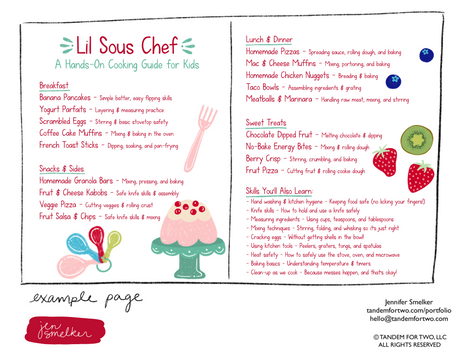 Lil Sous Chef
A Hands-On Cooking Guide for Kids
Breakfast
Banana Pancakes - Simple batter, easy flipping skills
Yogurt Parfaits - Layering & measuring practice
Scrambled Eggs - Stirring & basic stovetop safety
Coffee Cake Muffins - Mixing & baking in the oven
French Toast Sticks - Dipping, soaking, and pan-frying
Snacks & Sides
Homemade Granola Bars - Mixing, pressing, and baking
Fruit & Cheese Kabobs - Safe knife skills & assembly
Veggie Pizza - Cutting veggies & rolling crust
Fruit Salsa & Chips - Safe knife skills & mixing
Lunch & Dinner
Homemade Pizzas - Spreading sauce, rolling dough, and baking
Mac & Cheese Muffins - Mixing, portioning, and baking
Homemade Chicken Nuggets - Breading & baking
Taco Bowls - Assembling ingredients & grating
Meatballs & Marinara - Handling raw meat, mixing, and stirring
Sweet Treats
Chocolate Dipped Fruit - Melting chocolate & dipping
No-Bake Energy Bites - Mixing & rolling dough
Berry Crisp - Stirring, crumbling, and baking
Fruit Pizza - Cutting fruit & rolling cookie dough
Skills You'll Also Learn:
- Hand washing & kitchen hygiene - Keeping food safe (no licking your fingers!)
- Knife skills - How to hold and use a knife safely
- Measuring ingredients - Using cups, teaspoons, and tablespoons
- Mixing techniques - Stirring, folding, and whisking so it's just right
- Cracking eggs - Without getting shells in the bowl!
- Using kitchen tools - Peelers, graters, tongs, and spatulas
- Heat safety - How to safely use the stove, oven, and microwave
- Baking basics - Understanding temperature & timers
- Clean-up as we cook - Because messes happen, and that's okay!
example page
jen
smelker
Jennifer Smelker
tandemfortwo.com/portfolio
hello@tandemfortwo.com
© TANDEM FOR TWO, LLC
ALL RIGHTS RESERVED